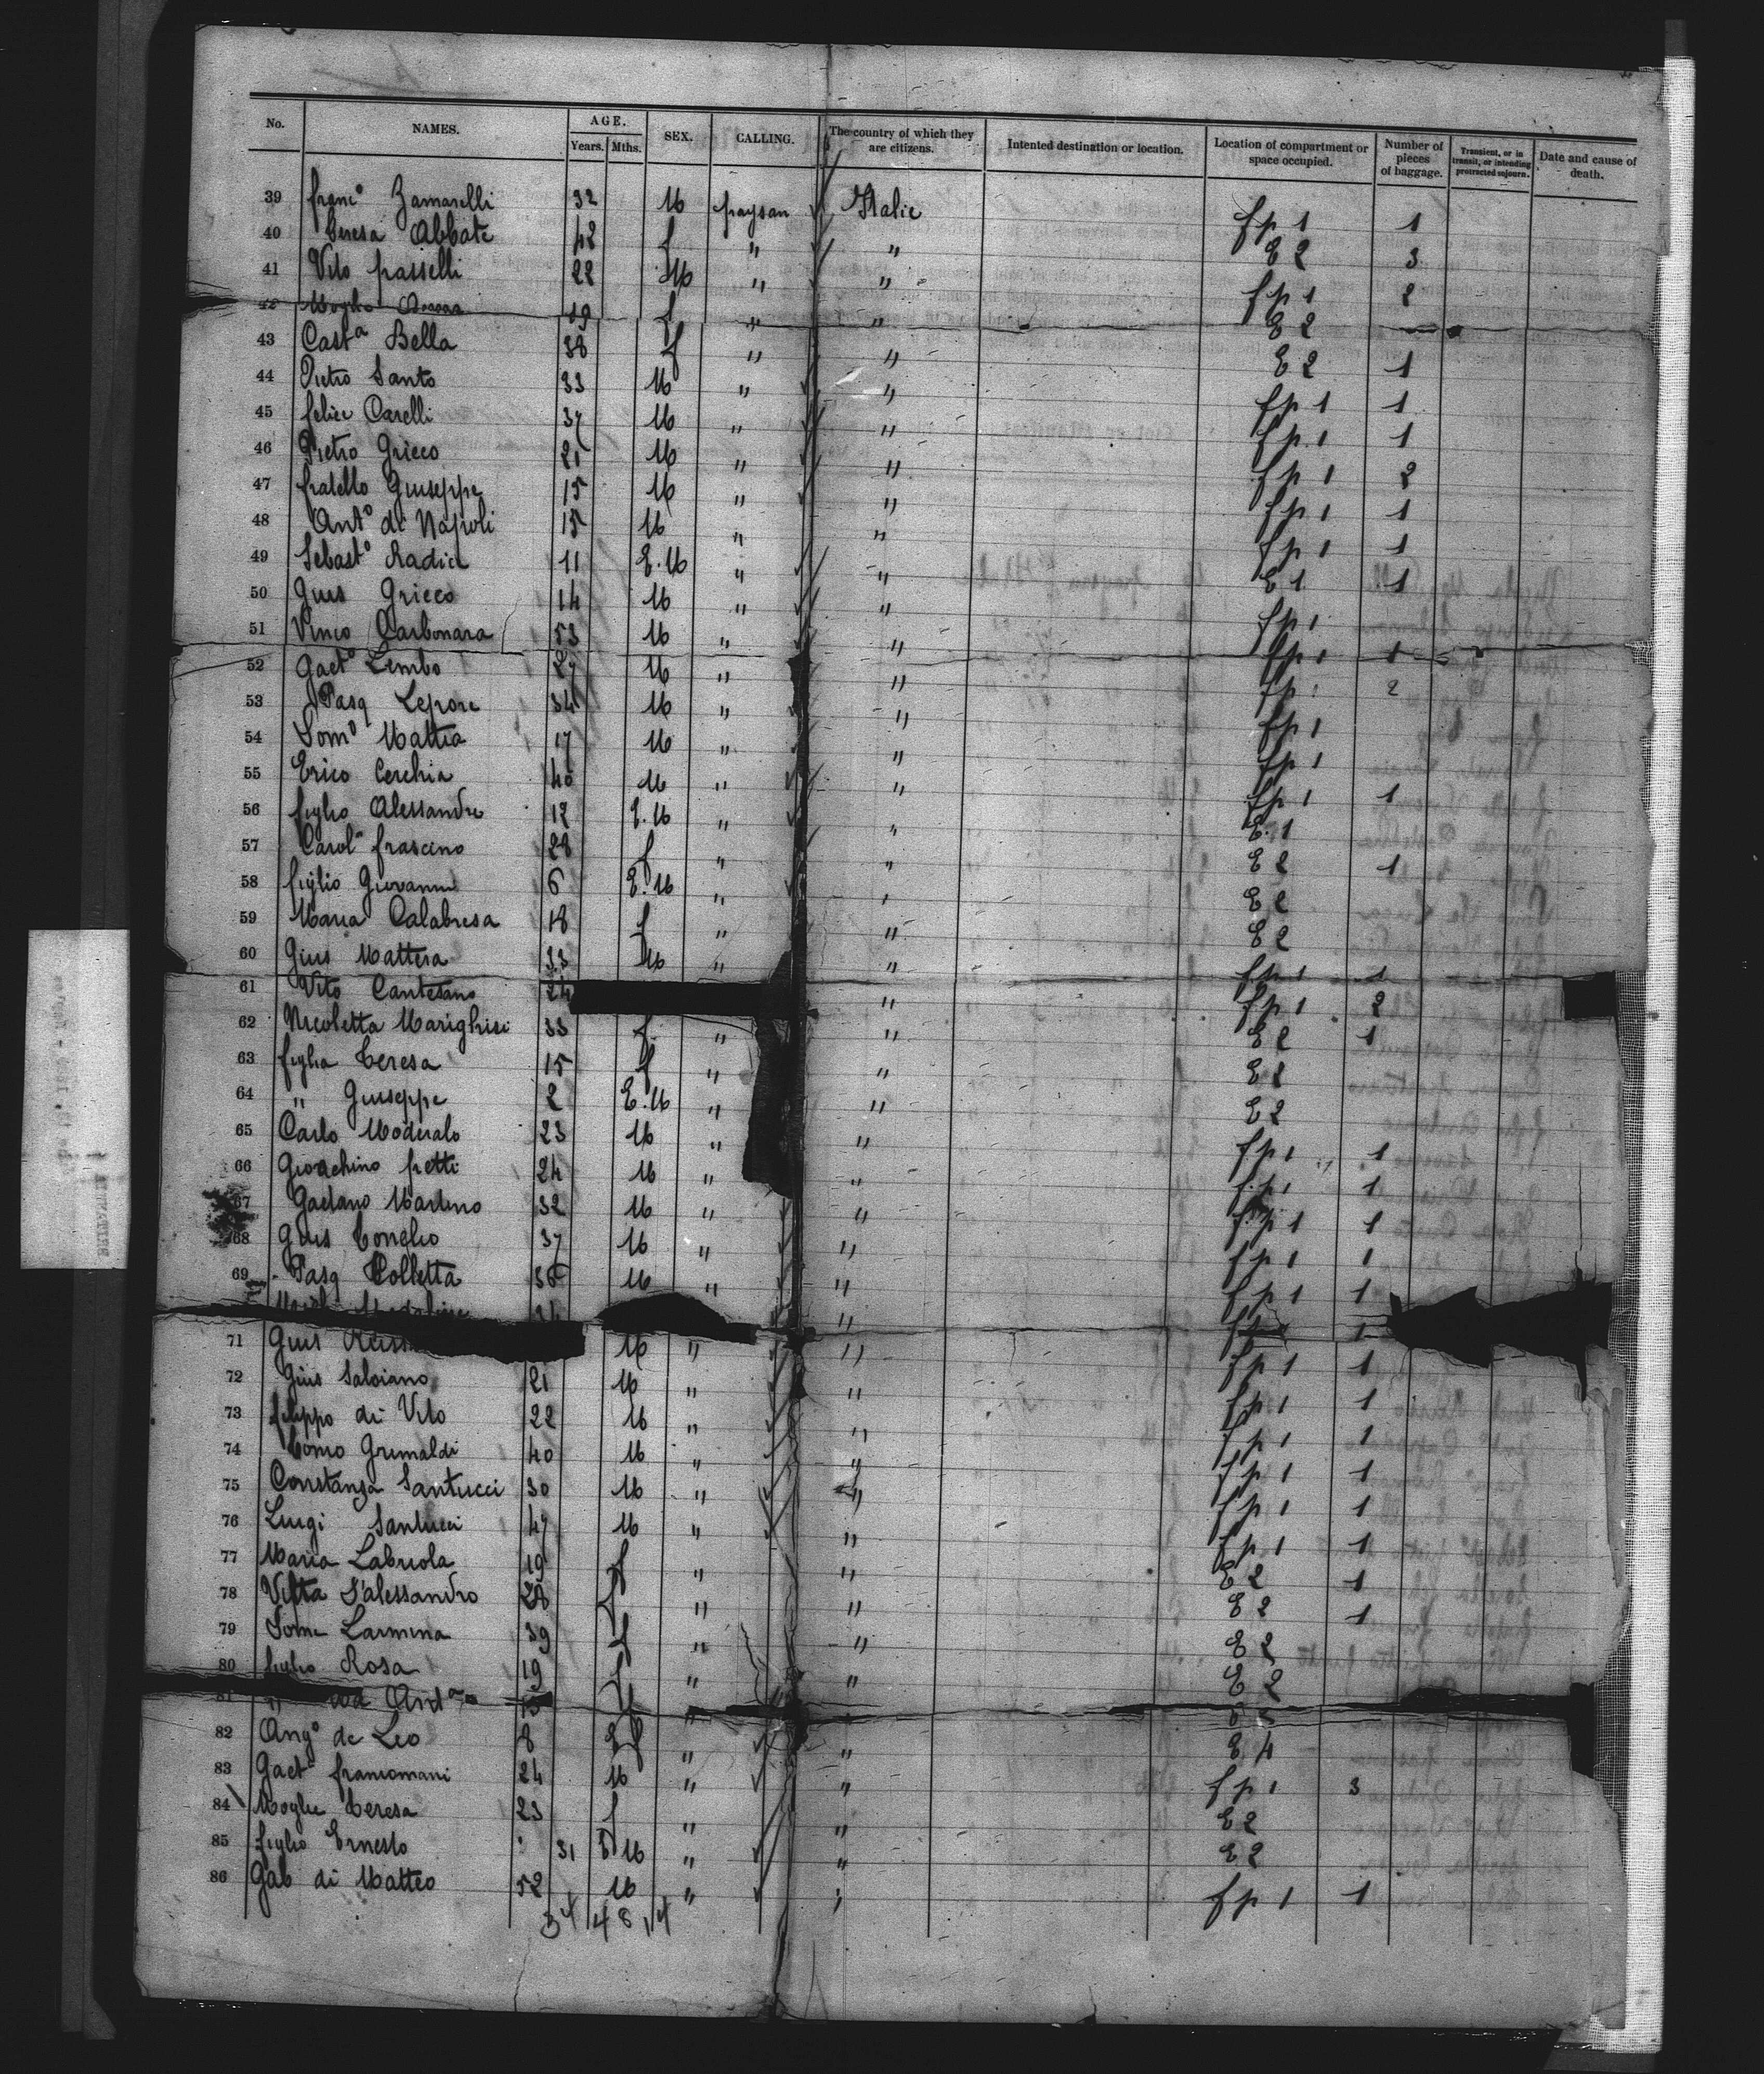 No. NAMES. AGE. Years. Mths. SEX. CALLING. The country of which they are citizens. Intented destination or location. Location of compartment or space occupied. Number of pieces of baggage. Transient, or in transit, or intending protracted sojourn. Date and cause of death.
39 franc° Zamarelli 32 M paysan Italie fp 1 1
40 Teresa Abbate 42 f " " E 2 3
41 Vito passelli 22 M " " fp 1 2
42 Moglie 19 f " " E 2
43 Casta Bella 38 f " " E 2 1
44 Pietro Santo 33 M " " fp 1 1
45 felice Carelli 37 M " " fp 1 1
46 Pietro Grieco 21 M " " fp 1 2
47 fratello Giuseppe 15 M " " fp 1 1
48 Ant° di Napoli 15 M " " fp 1 1
49 Sebast° Radice 11 E.M " " E 1 1
50 Gius Grieco 14 M " " fp 1
51 Vinco Carbonara 53 M " " fp 1 1
52 Gaet° Lembo 27 M " " fp 1 2
53 Pasq Lepore 34 M " " fp 1
54 Dom° Mattia 17 M " " fp 1
55 Erico Cerchia 40 M " " fp 1 1
56 figlio Alessandro 12 E.M " " E 1
57 Carolª frascino 28 f " " E 2 1
58 figlio Giovanni 6 E.M " " E 2
59 Maria Calabresa 18 f " " E 2
60 Gius Mattera 33 M " " fp 1 1
61 Vito Cantesano 24 " fp 1 2
62 Nicoletta Marighisi 33 f " " E 2 1
63 figlia Teresa 15 f " " E 2
64 " Giuseppe 2 E.M " " E 2
65 Carlo Moderato 23 M " " fp 1 1
66 Gioachino petti 24 M " " fp 1 1
67 Gaetano Martino 32 M " " fp 1 1
68 Gius Torrelio 37 M " " fp 1 1
69 Pasq Colletta 36 M " " fp 1 1
" fp 1
71 Gius M " " fp 1 1
72 Gius Salviano 21 M " " fp 1 1
73 filippo di Vito 22 M " " fp 1 1
74 Tomo Grimaldi 40 M " " fp 1 1
75 Constanza Santucci 30 M " " fp 1 1
76 Luigi Santucci 47 M " " fp 1 1
77 Maria Labriola 19 f " " E 2 1
78 Vitta D'alessandro 28 f " " E 2 1
79 Dom Larmina 39 f " " E 2
80 figlia Rosa 19 f " " E 2
81 " " "
82 Ang° de Leo 8 E f " " E 4
83 Gaet° francomani 24 M " " fp 1 3
84 Moglie Teresa 23 f " " E 2
85 figlio Ernesto " 31 E M " " E 2
86 Gab di Matteo 52 M " " fp 1 1